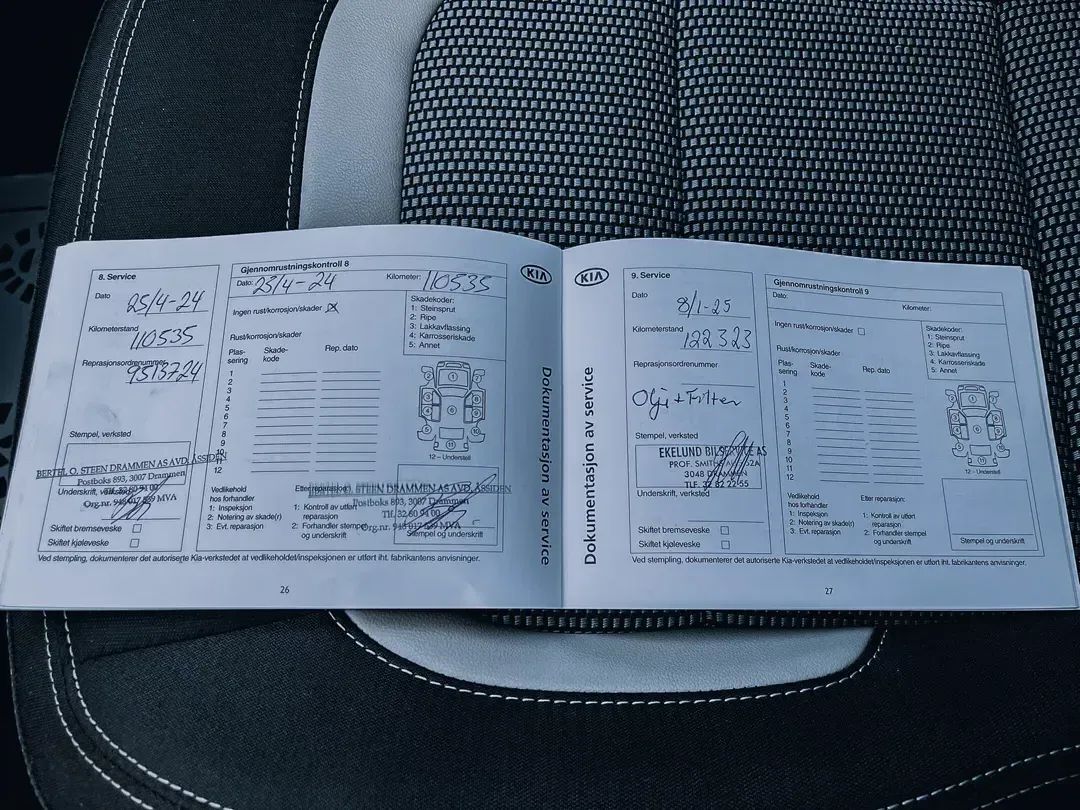 8. Service
Dato 25/4-24
Kilometerstand
110535
Reprasjonsordrenummer
9513724
Stempel, verksted
BERTEL O. STEEN DRAMMEN AS AVD. ÅSSIDEN
Postboks 893, 3007 Drammen
Tlf. 32 60 94 00
Org.nr. 948 017 539 MVA
Underskrift, verksted
Skiftet bremseveske
Skiftet kjøleveske
Gjennomrustningskontroll 8
Dato: 25/4-24 Kilometer: 110535
Ingen rust/korrosjon/skader
Rust/korrosjon/skader
Plas-
sering
Skade-
kode
Rep. dato
1
2
3
4
5
6
7
8
9
10
11
12
Skadekoder:
1: Steinsprut
2: Ripe
3: Lakkavflassing
4: Karrosseriskade
5: Annet
12 – Understell
Vedlikehold
hos forhandler
1: Inspeksjon
2: Notering av skade(r)
3: Evt. reparasjon
Etter reparasjon:
1: Kontroll av utført
reparasjon
2: Forhandler stempel
og underskrift
BERTEL O. STEEN DRAMMEN AS AVD. ÅSSIDEN
Postboks 893, 3007 Drammen
Tlf. 32 60 94 00
Org.nr. 948 017 539 MVA
Stempel og underskrift
Ved stempling, dokumenterer det autoriserte Kia-verkstedet at vedlikeholdet/inspeksjonen er utført iht. fabrikantens anvisninger.
26
KIA
Dokumentasjon av service
KIA
Dokumentasjon av service
9. Service
Dato
8/1-25
Kilometerstand
122323
Reprasjonsordrenummer
Olje + Filter
Stempel, verksted
EKELUND BILSERVICE AS
PROF. SMITHS
3048 DRAMMEN
TLF. 32 82 22 55
Underskrift, verksted
Skiftet bremseveske
Skiftet kjøleveske
Gjennomrustningskontroll 9
Dato:
Kilometer:
Ingen rust/korrosjon/skader
Rust/korrosjon/skader
Plas-
sering
Skade-
kode
Rep. dato
1
2
3
4
5
6
7
8
9
10
11
12
Skadekoder:
1: Steinsprut
2: Ripe
3: Lakkavflassing
4: Karrosseriskade
5: Annet
12 – Understell
Vedlikehold
hos forhandler
1: Inspeksjon
2: Notering av skade(r)
3: Evt. reparasjon
Etter reparasjon:
1: Kontroll av utført
reparasjon
2: Forhandler stempel
og underskrift
Stempel og underskrift
Ved stempling, dokumenterer det autoriserte Kia-verkstedet at vedlikeholdet/inspeksjonen er utført iht. fabrikantens anvisninger.
27